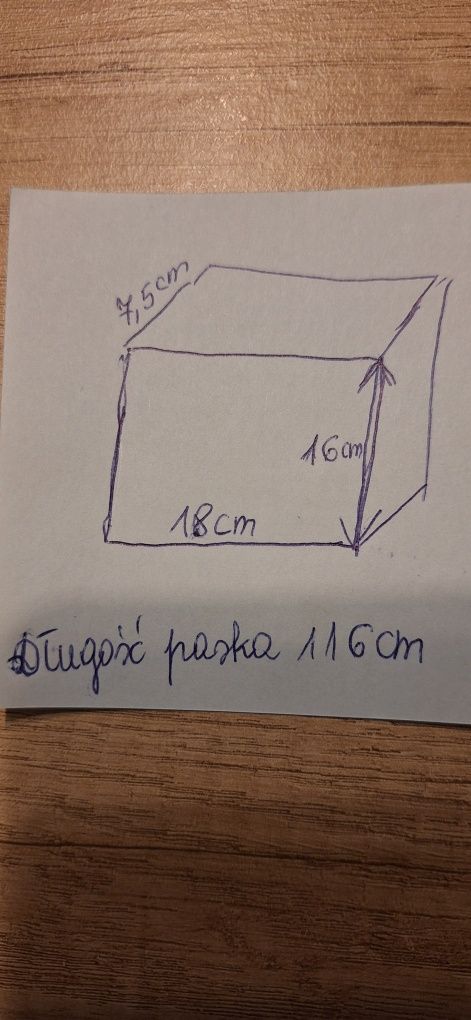 7,5cm
16cm
18cm
Długość paska 116cm